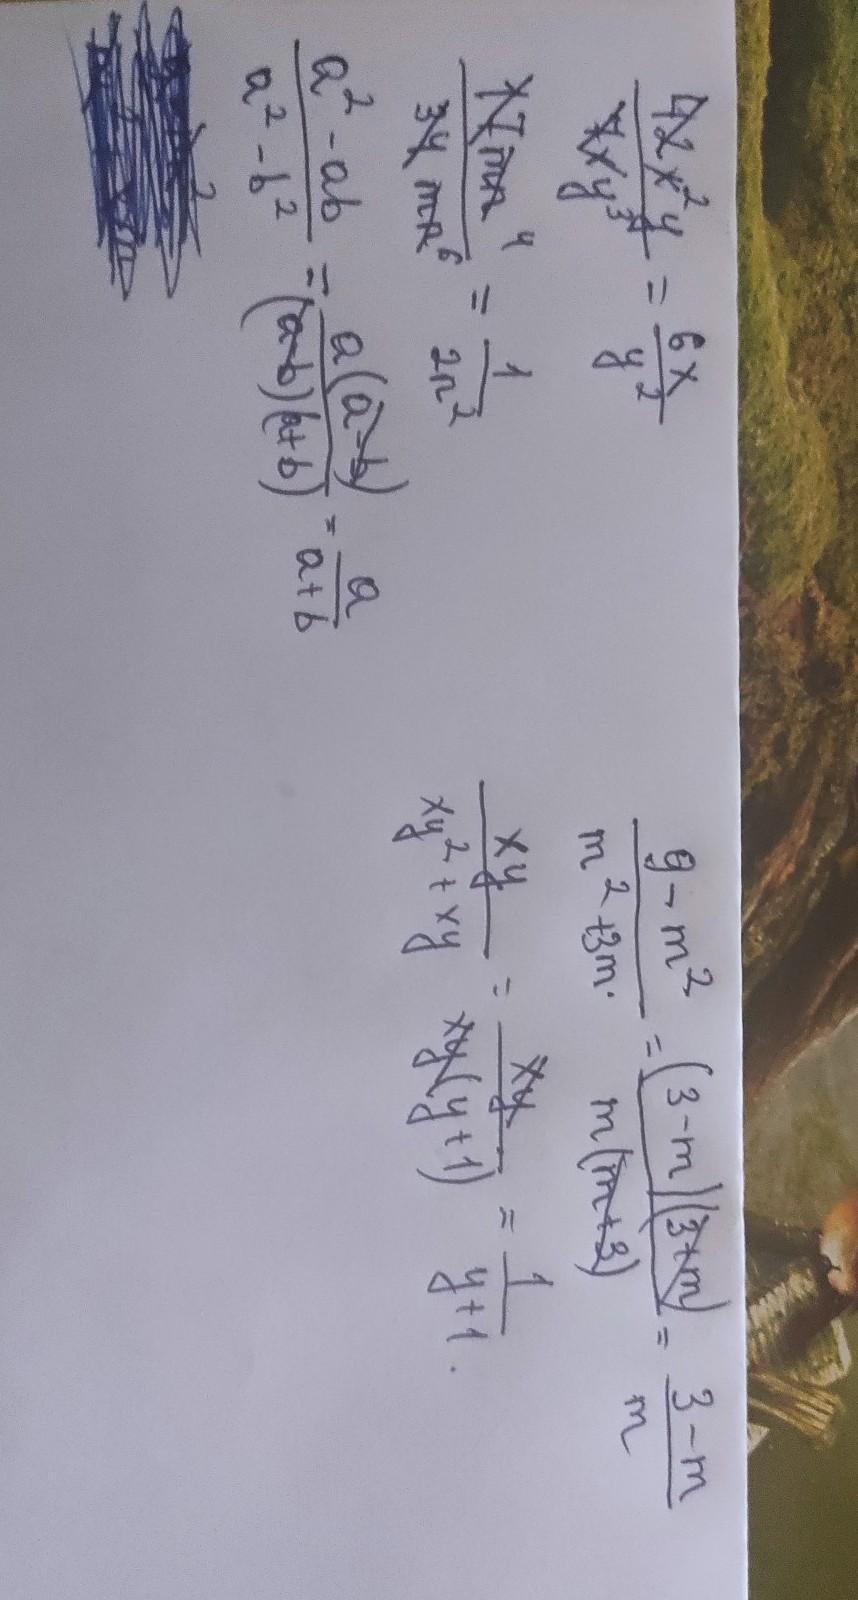 42x²y / 7xy³ = 6x / y²
17mn⁴ / 34mn⁶ = 1 / 2n²
a² - ab / a² - b² = a(a-b) / (a-b)(a+b) = a / a+b
9 - m² / m² + 3m. = (3-m)(3+m) / m(m+3) = 3-m / m
xy / xy² + xy = xy / xy(y+1) = 1 / y+1.